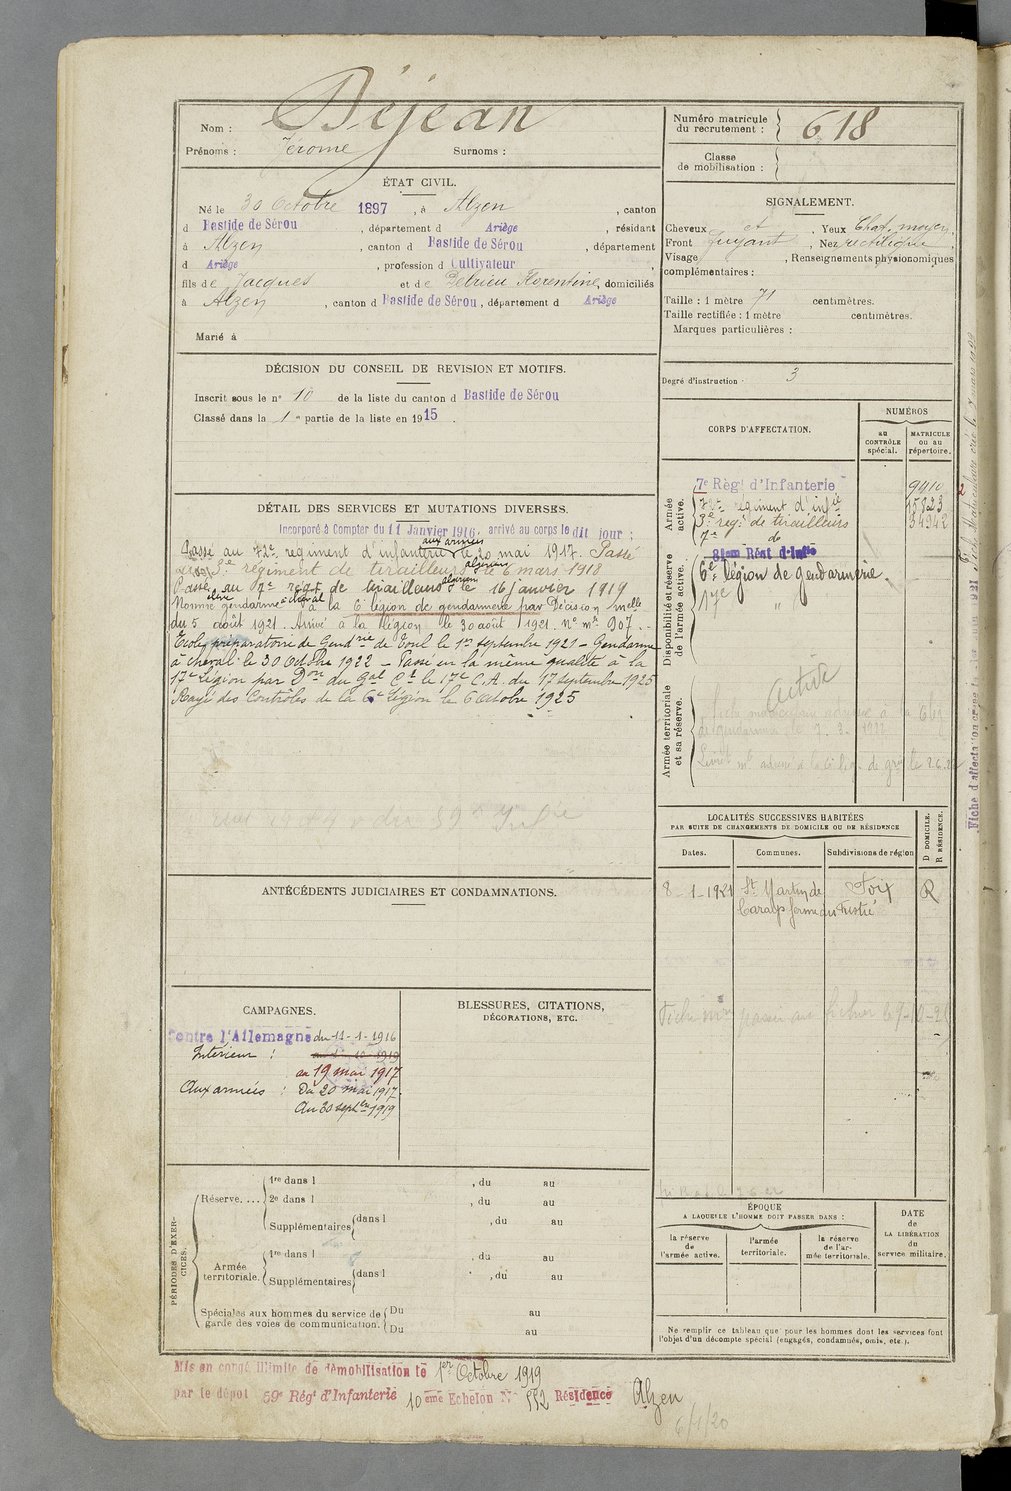 Nom : Déjean
Prénoms : Jérome Surnoms :
Numéro matricule du recrutement : 618
Classe de mobilisation :
ÉTAT CIVIL.
Né le 30 Octobre 1897, à Alzen, canton
d Bastide de Sérou, département d Ariège, résidant
à Alzen, canton d Bastide de Sérou, département
d Ariège, profession d Cultivateur
fils de Jacques et de Delrieu Florentine, domiciliés
à Alzen, canton d Bastide de Sérou, département d Ariège
Marié à
SIGNALEMENT.
Cheveux Yeux Chat. moyen,
Front fuyant, Nez rectiligne
Visage , Renseignements physionomiques
complémentaires :
Taille : 1 mètre 71 centimètres.
Taille rectifiée : 1 mètre centimètres.
Marques particulières :
Degré d'instruction . 3
DÉCISION DU CONSEIL DE REVISION ET MOTIFS.
Inscrit sous le n° 10 de la liste du canton d Bastide de Sérou
Classé dans la 1re partie de la liste en 1915.
DÉTAIL DES SERVICES ET MUTATIONS DIVERSES.
Incorporé à Compter du 11 Janvier 1916, arrivé au corps le dit jour ;
aux armées
Passé au 72e regiment d'infanterie le 20 mai 1917. Passé
au 3e régiment de tirailleurs algérien le 6 mars 1918
Passé au 7e régt de tirailleurs algérien le 16 janvier 1919
Nommé élève gendarme à cheval à la 6e légion de gendarmerie par Décision Mlle
du 5 août 1921. Arrivé à la légion le 30 août 1921. No mle 907.
Ecole préparatoire de Gendrie de Toul le 1er septembre 1921 - Gendarme
à cheval le 30 Octobre 1922 - Passé en la même qualité à la
17e Légion par Don du Gal Ct le 17e C.A. du 17 septembre 1925
Rayé des Contrôles de la 6e Légion le 6 octobre 1925
CORPS D'AFFECTATION.
NUMÉROS
au CONTRÔLE spécial.
MATRICULE ou au répertoire.
Armée active.
7e Régt d'Infanterie 9410
72e régiment d'infie 15823
3e régt de tirailleurs 34942
7e do
Disponibilité et réserve de l'armée active.
81em Régt d'Infie
6e légion de gendarmerie.
17e "
Armée territoriale et sa réserve.
active
LOCALITÉS SUCCESSIVES HABITÉES
PAR SUITE DE CHANGEMENTS DE DOMICILE OU DE RÉSIDENCE
Dates. Communes. Subdivisions de région
D DOMICILE. R RÉSIDENCE.
8-1-1921 St Martin de Foix R
Caralp ferme du Tristié
ANTÉCÉDENTS JUDICIAIRES ET CONDAMNATIONS.
CAMPAGNES.
Contre l'Allemagne du 11-1-1916
Intérieur :
au 19 mai 1917
Aux armées : Du 20 mai 1917.
Au 30 septbre 1919
BLESSURES, CITATIONS,
DÉCORATIONS, ETC.
PÉRIODES D'EXERCICES.
Réserve....
1re dans l , du au
2e dans l , du au
Supplémentaires dans l , du au
Armée territoriale.
1re dans l , du au
Supplémentaires dans l , du au
Spéciales aux hommes du service de garde des voies de communication.
Du au
Du au
ÉPOQUE
A LAQUELLE L'HOMME DOIT PASSER DANS :
la réserve de l'armée active.
l'armée territoriale.
la réserve de l'armée territoriale.
DATE de LA LIBÉRATION du service militaire.
Ne remplir ce tableau que pour les hommes dont les services font
l'objet d'un décompte spécial (engagés, condamnés, omis, etc.).
Mis en congé illimité de démobilisation le 1er Octobre 1919
par le dépôt 59e Régt d'Infanterie 10eme Echelon N° 552 Résidence Alzen
6/1/20